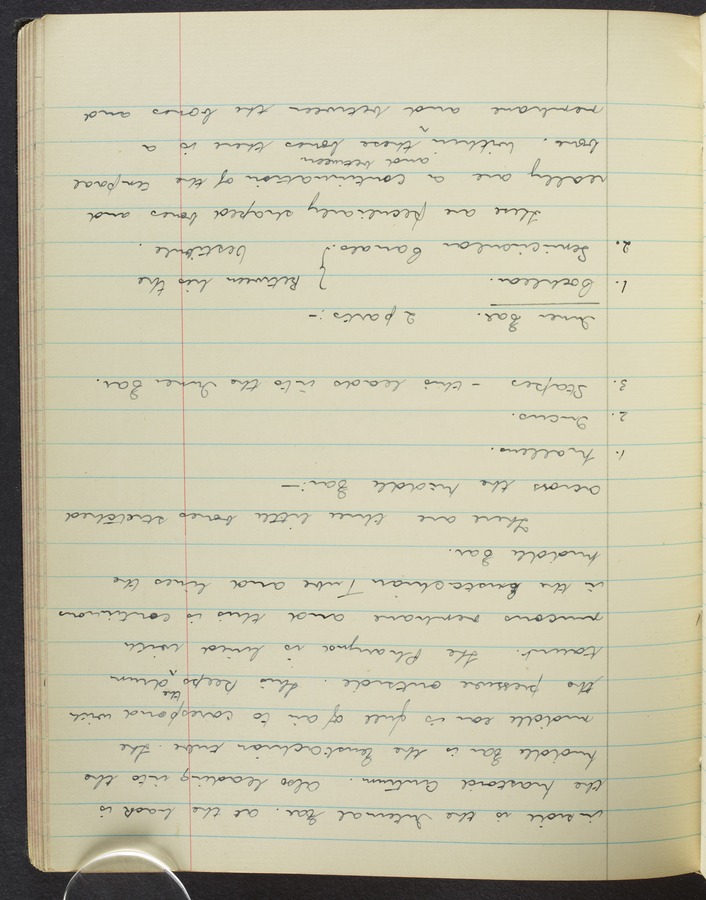 inside is the Internal Ear. At the back is
the Mastoid Antrum. Also leading into the
Middle Ear is the Eustachian tube. The
middle ear is full of air to correspond with
the pressure outside. This keeps the drum
taunt. The Pharynx is lined with
mucous membrane and this is continuous
in the Eustachian Tube and lines the
Middle Ear.
There are three little bones stretched
across the Middle Ear:-
1. Malleus.
2. Incus.
3. Stapes - this leads into the Inner Ear.
Inner Ear. 2 parts:-
1. Cochlear. } Between lies the
2. Semicircular Canals. } Vestibule.
These are peculiarly shaped bones and
really are a continuation of the temporal
bone. Within and between these bones there is a
membrane and between the bones and